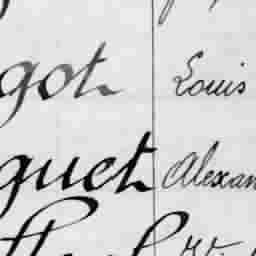 got Louis
guet Alexan